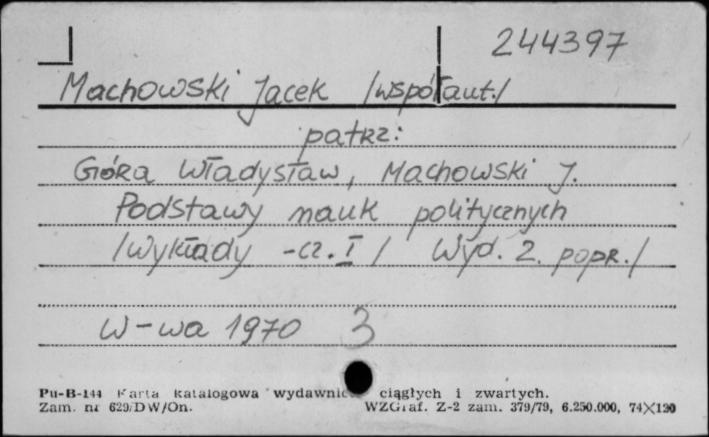 244397
Machowski Jacek /współaut./
patrz:
Góra Władysław, Machowski J.
Podstawy nauk politycznych
/wykłady -cz. I / Wyd. 2. popr./
W-wa 1970 3
Pu-B-144 Karta katalogowa wydawnic ciągłych i zwartych.
Zam. nr 629/DW/On. WZGraf. Z-2 zam. 379/79, 6.250.000, 74X120